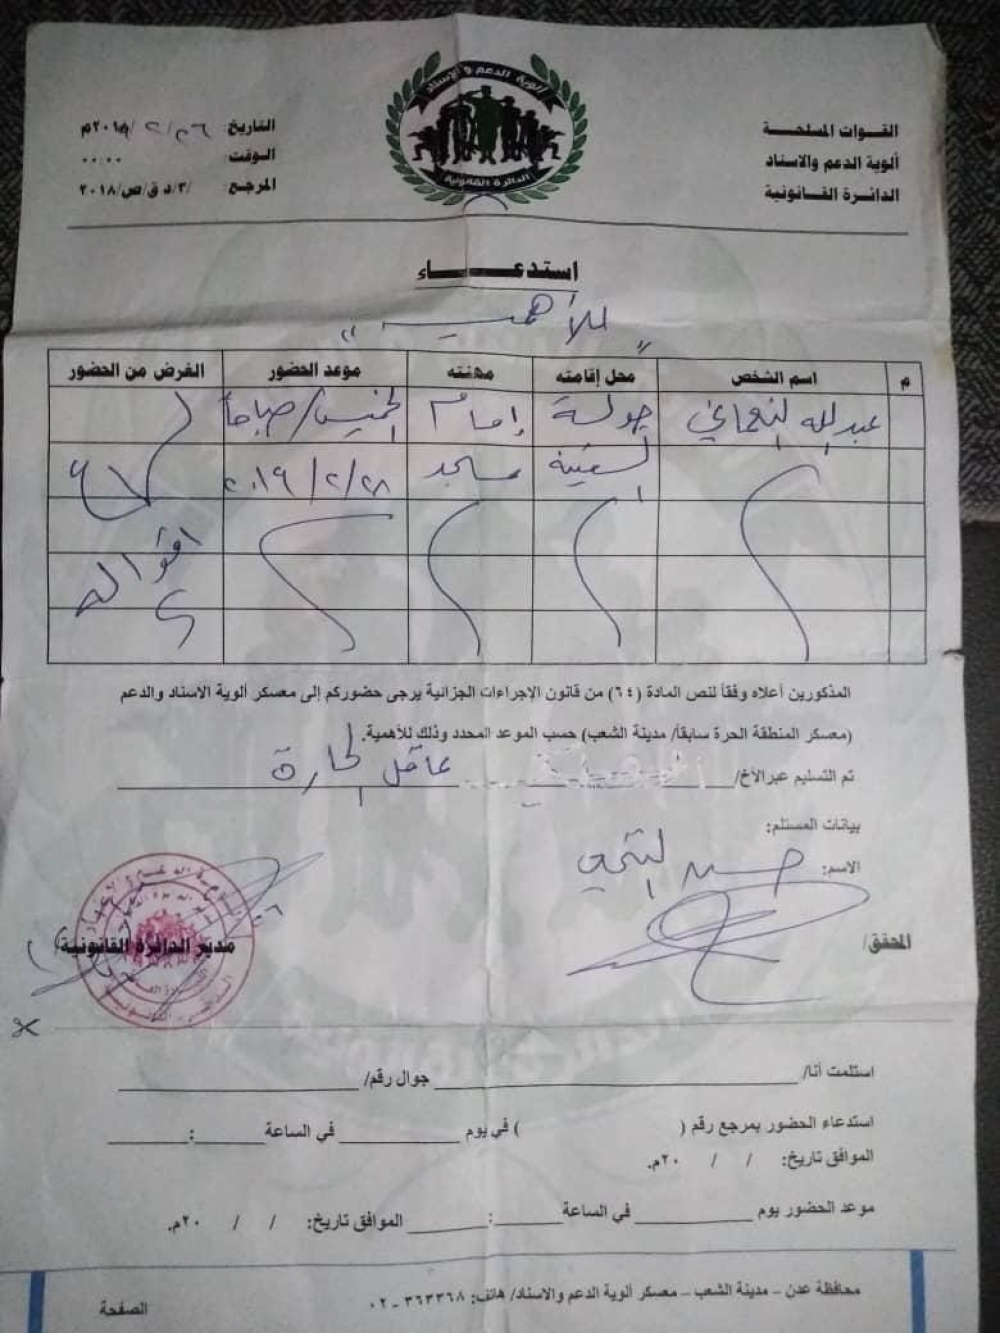 القوات المسلحة
ألوية الدعم والاسناد
الدائرة القانونية
ألوية الدعم والإسناد
الدائرة القانونية
التاريخ: ٢٦/٢/٢٠١٩م
الوقت: ٠٠:٠٠
المرجع: /٣/د ق/ص/٢٠١٨
استدعاء
"للأهمية"
م اسم الشخص محل إقامته مهنته موعد الحضور الغرض من الحضور
عبدالله النعماني جولة إمام الخميس/صباحاً
السفينة مسجد ٢٠١٩/٢/٢٨
اقواله
المذكورين أعلاه وفقاً لنص المادة (٦٤) من قانون الإجراءات الجزائية يرجى حضوركم إلى معسكر ألوية الاسناد والدعم
(معسكر المنطقة الحرة سابقاً/ مدينة الشعب) حسب الموعد المحدد وذلك للأهمية.
تم التسليم عبرالأخ/ عاقل الحارة
بيانات المستلم:
الاسم:
المحقق/
مدير الدائرة القانونية
استلمت أنا/ جوال رقم/
استدعاء الحضور بمرجع رقم ( ) في يوم في الساعة :
الموافق تاريخ: / / ٢٠م.
موعد الحضور يوم في الساعة : الموافق تاريخ: / / ٢٠م.
محافظة عدن – مدينة الشعب – معسكر ألوية الدعم والاسناد/ هاتف: ٣٦٣٣٦٨ - ٠٢
الصفحة